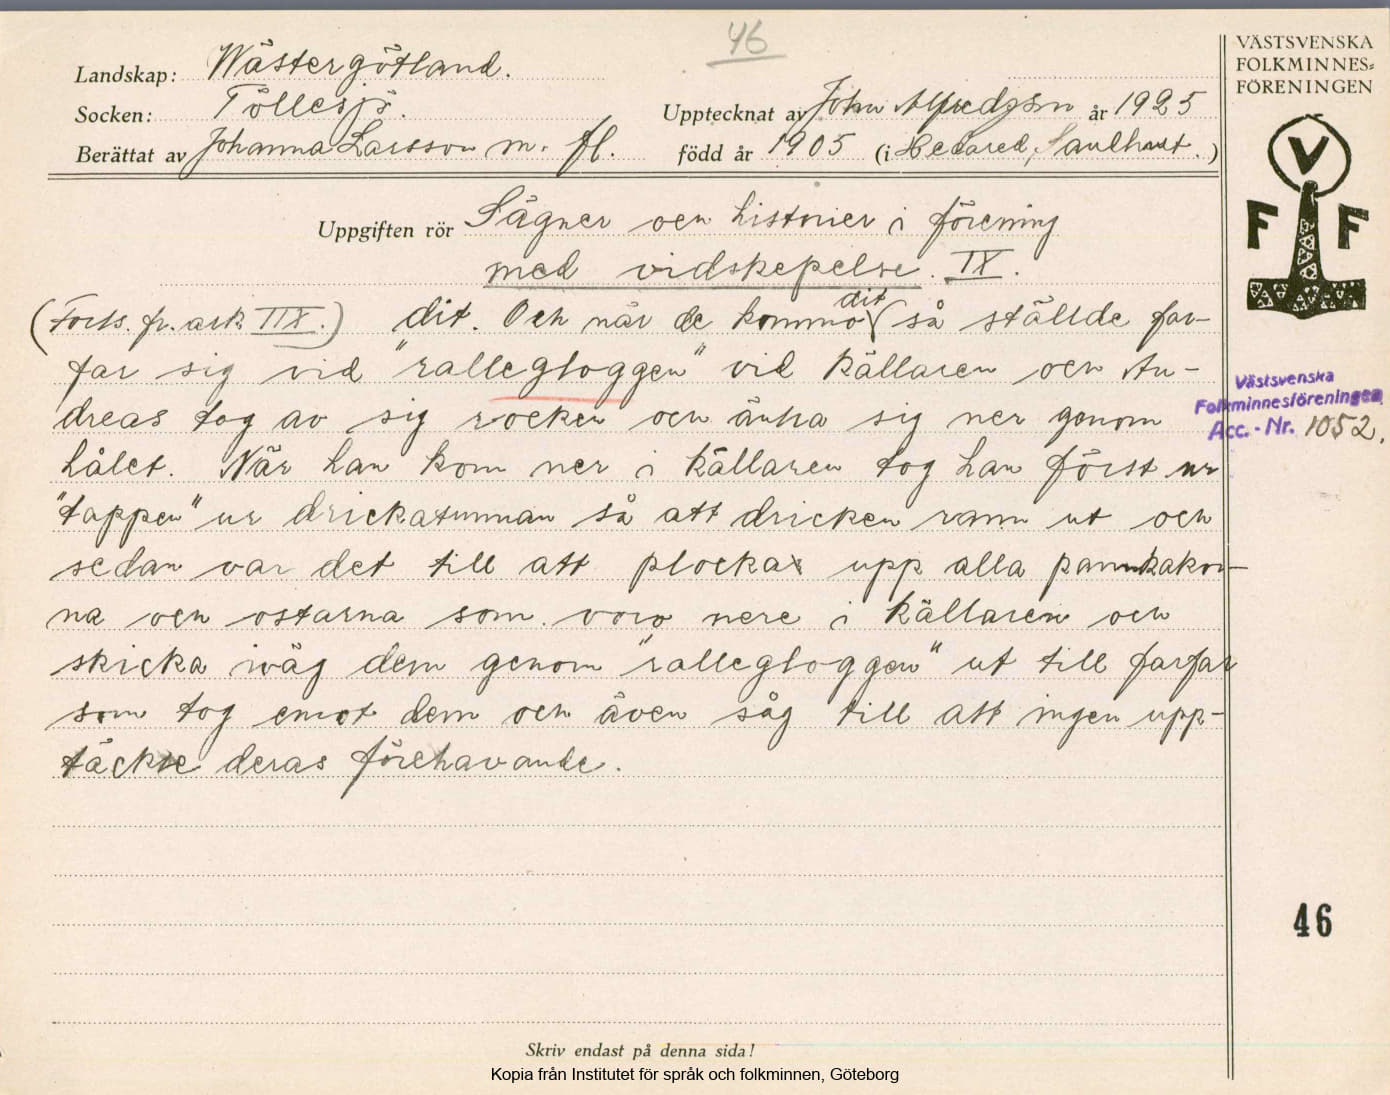 46
VÄSTSVENSKA
FOLKMINNES=
FÖRENINGEN
Landskap: Wästergötland.
Socken: Töllesjö. Upptecknat av John Alfredzson år 1925
Berättat av Johanna Larsson m. fl. född år 1905 (i Hedared, Sandhult.)
V
F F
Uppgiften rör Sägner och historier i förening
med vidskepelse. IX.
(Forts. fr. ark IIX.) dit. Och när de kommo dit så ställde far-
far sig vid "rallegloggen" vid källaren och An-
dreas tog av sig rocken och änka sig ner genom
hålet. När han kom ner i källaren tog han först ur
"tappen" ur drickatunnan så att drickan rann ut och
sedan var det till att plocka upp alla pannkakor-
na och ostarna som voro nere i källaren och
skicka iväg dem genom "rallegloggen" ut till farfar
som tog emot dem och även såg till att ingen upp-
täckte deras förehavande.
Västsvenska
Folkminnesföreningen
Acc. - Nr. 1052.
46
Skriv endast på denna sida!
Kopia från Institutet för språk och folkminnen, Göteborg